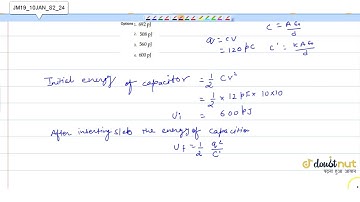 JM19_10JAN_S2_24
Options 1. 692 pJ
2. 508 pJ
3. 560 pJ
4. 600 pJ
q = CV
= 120 pC
C = Aε₀/d
C' = KAε₀/d
Initial energy of capacitor = 1/2 CV²
= 1/2 × 12 pF × 10×10
Ui = 600 pJ
After inserting slab the energy of capacitior
Uf = 1/2 q²/C'
doubtnut
पढ़ना हुआ आसान